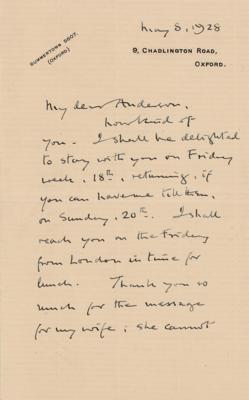 May 8, 1928
SUMMERTOWN 5907.
(OXFORD)
9, CHADLINGTON ROAD,
OXFORD.
My dear Anderson,
how kind of
you. I shall be delighted
to stay with you on Friday
week, 18th, returning, if
you can have me till then,
on Sunday, 20th. I shall
reach you on the Friday
from London in time for
lunch. Thank you so
much for the message
for my wife; she cannot